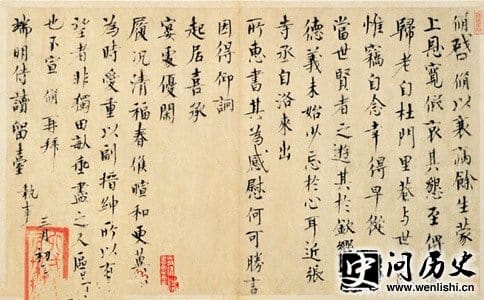 脩啓脩以衰病餘生蒙
上恩寬假哀其懇至俾
歸老自杜門里巷與世
惟竊自念幸得早從
當世賢者之遊其於欽嚮
德義未始少忘於心耳近張
寺丞自洛來出
所惠書其為感慰何可勝言
因得仰詢
起居喜承
宴處優閑
履況清福春候暄和更冀
為時愛重以副搢紳所以有
望者非獨田畝垂盡之人區區
也不宣脩再拜
端明侍讀留臺執事
三月初
史问历史
www.wenlishi.cn